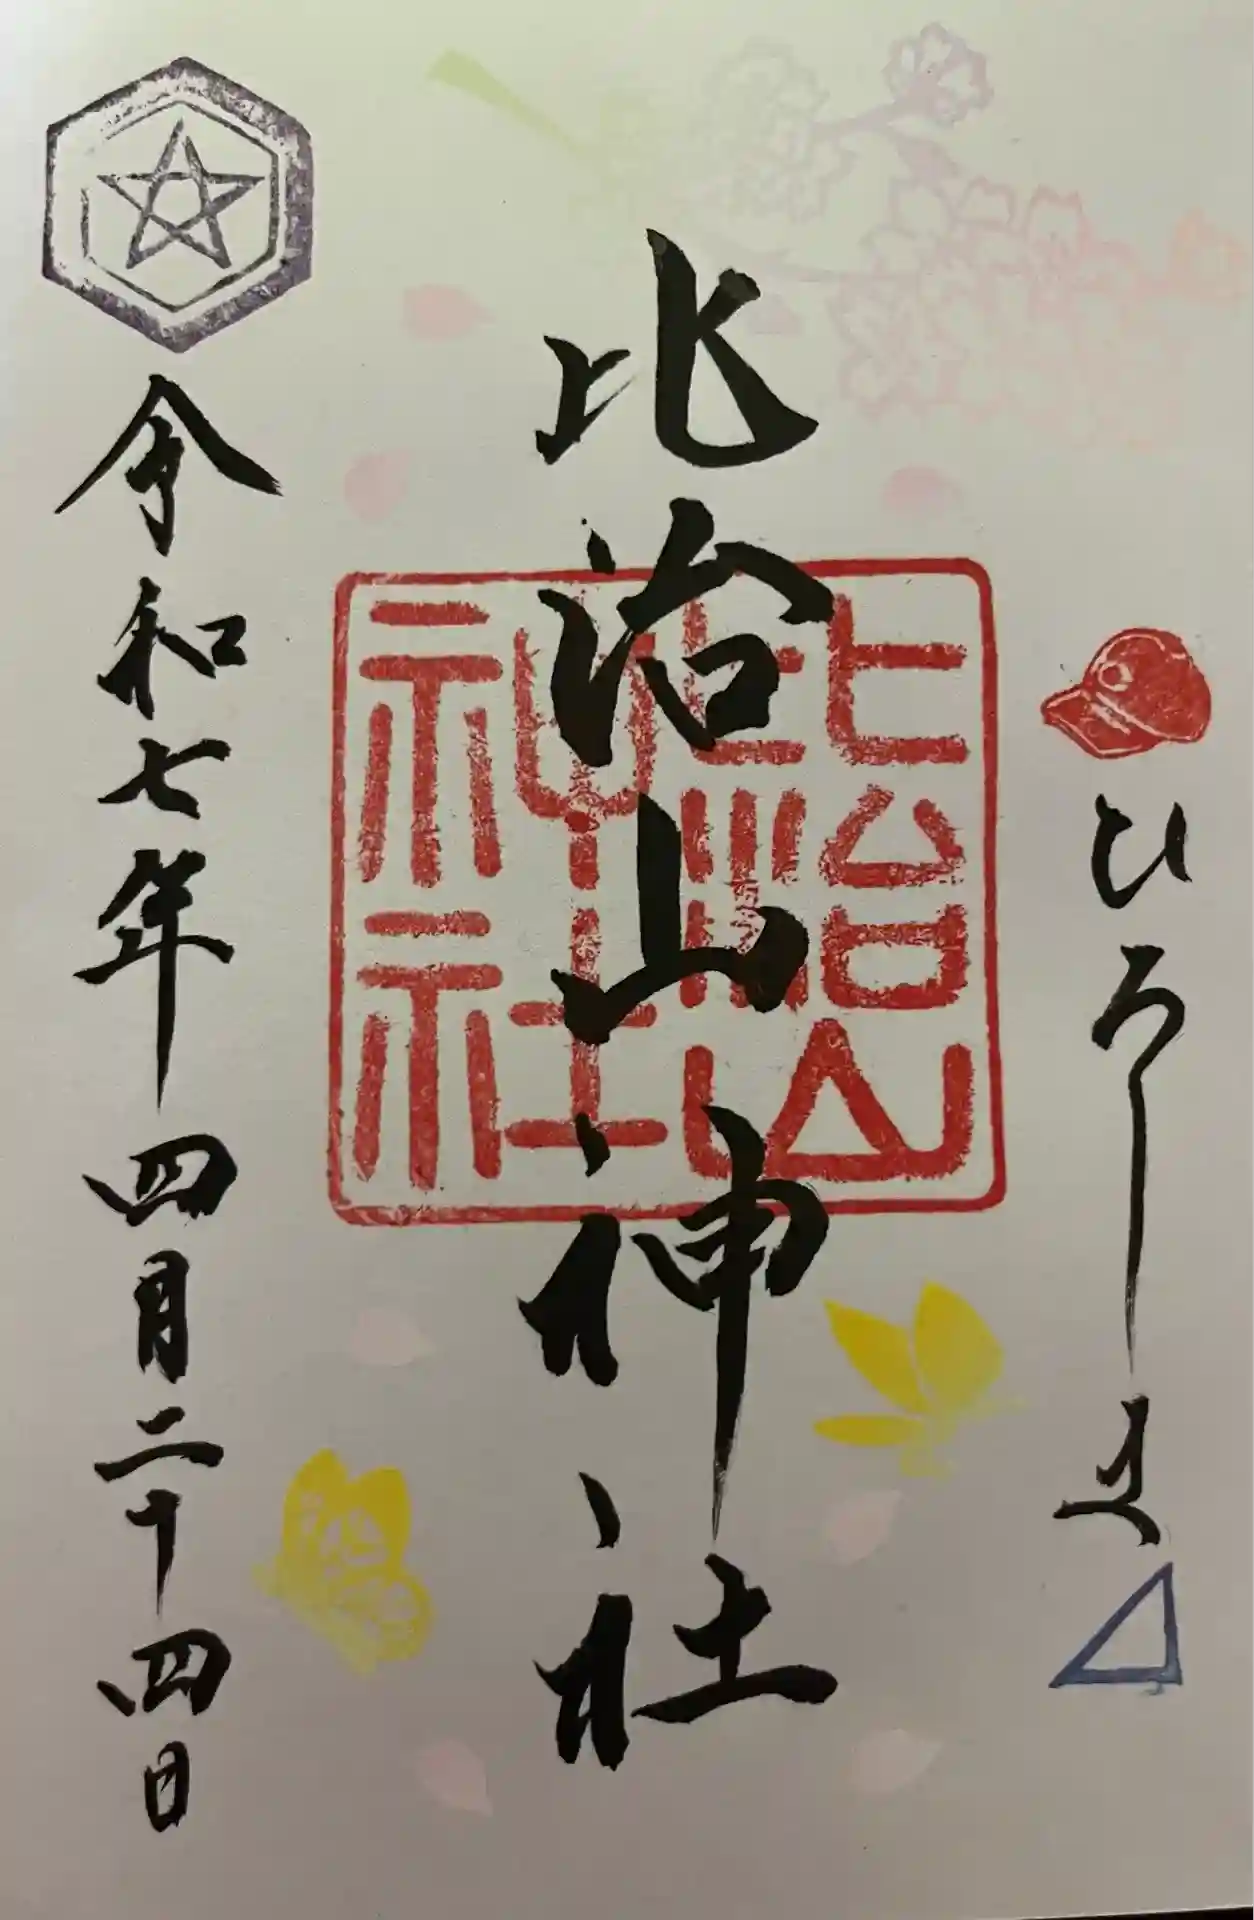 ひろしま
比治山神社
比治山神社
令和七年四月二十四日